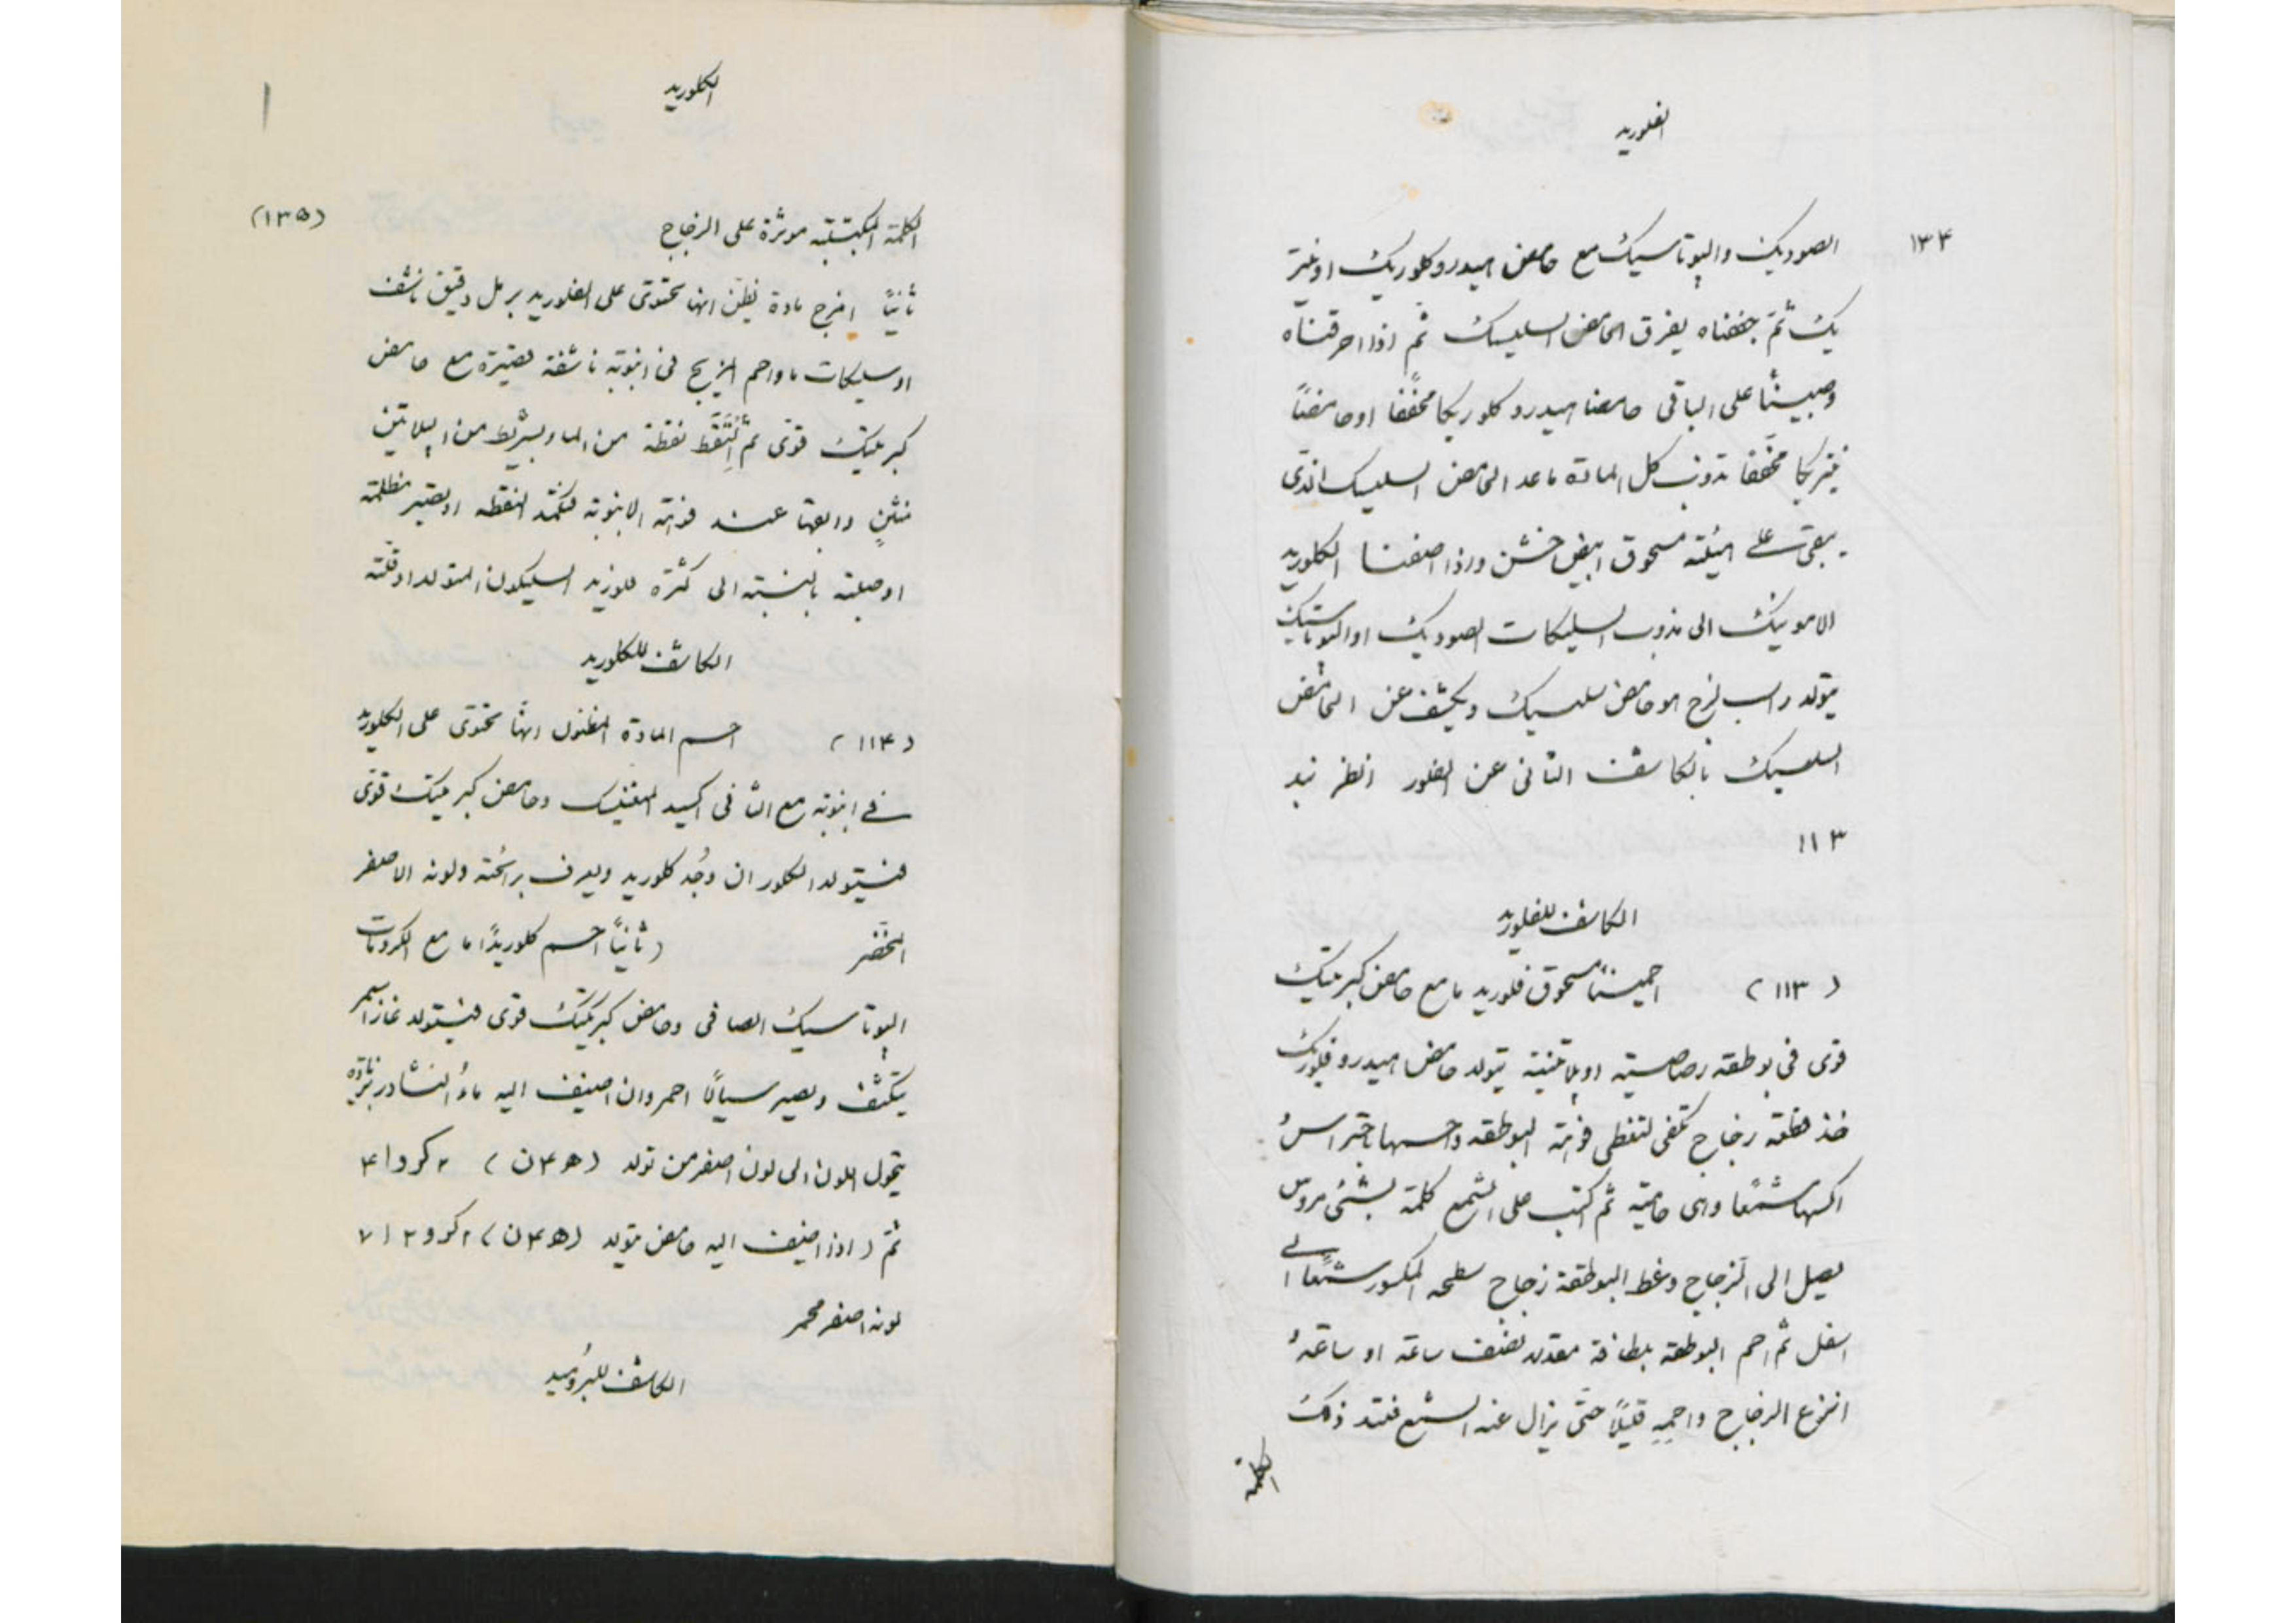 الفلوريد
١٣٤
الصوديك والپوتاسيك مع حامض هيدروكلوريك اونيتر
يك ثمّ جففناه يفرق الحامض السليسك ثم اذا احرقناه
وصبينا على الباقى حامضا هيدروكلوريكا مخففا اوحامضًا
نيتريكا مخففا تذوب كل المادة ماعدا الحامض السليسك الذى
يبقى على هيئته مسحوق ابيض خشن واذا اضفنا الكلوريد
الامونيك الى مذوب السليكات الصوديك اوالپوتاسيك
يتولد راسب لزج هو حامض سليسيك ويكشف عن الحامض
السلسيك بالكاشف الثانى عن الفلور انظر نبد
١١٣
الكاشف للفلوريد
(١١٣) احمينا مسحوق فلوريد ما مع حامض كبريتيك
قوى فى بوطقه رصاصيته او پلاتنيته يتولد حامض هيدروفلوريك
خذ قطعته زجاج تكفى لتغطى فوهة البوطقه واحمها باحتراس
اكسها شمعًا وهى حاميته ثم اكتب على الشمع كلمة بشئ مروس
يصل الى الزجاج وغط البوطقة زجاج سطحه المكسور شمعًا الى
اسفل ثم احم البوطقه بلطافة مقدار نصف ساعة او ساعة
انزع الزجاج واحمِهِ قليلًا حتّى يزال عنه الشمع فتتد ذلك
الكلمة
الكلوريد
(١٣٥)
الكلمة المكتبتبه موثرة على الزجاج
ثانيًا امزج مادة يظنّ انها تحتوى على الفلوريد برمل دقيق ناشف
اوسليكات ما واحم المزيج فى انبوبة ناشفة قصيرة مع حامض
كبريتيك قوى ثم اَلْتَقِط نقطة من الماء بشريط من الپلاتين
منثنٍ وابقها عند فوهة الانبوبة فتكمّد النقطه اويصير مظلمة
اوصلبته بالنسبة الى كثرة فلوريد السليكون المتولد اوقلّته
الكاشف للكلوريد
(١١٤) احــم المادة المظنول انها تحتوى على الكلوريد
فى انبوبة مع الثانى اكسيد المنغنيس وحامض كبريتيك قوى
فيتولد الكلور ان وُجُد كلوريد ويعرف برائحته ولونه الاصفر
المخضر (ثانيًا احــم كلوريدًا ما مع الكرومات
الپوتاسيك الصافى وحامض كبريتيك قوى فيتولد غاز احمر
يتكثف ويصير سيالًا احمر وان اضيف اليه ماءُ النشادر بزيادة
يتحول اللون الى لون اصفر من تولد (هـ٤ن) ٢كرو١٤
ثمّ (اذا اضيف اليه حامض تولد (هـ٤ن)٢كرو٢ا٧
لونه اصفر محمر
الكاشف للبروُميد